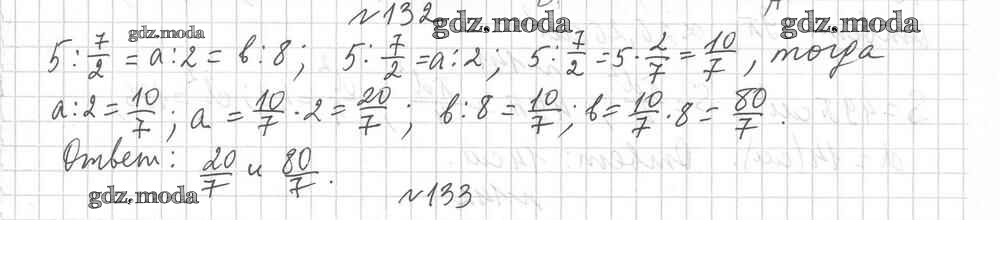 №132
gdz.moda gdz.moda gdz.moda
5 : 7/2 = a : 2 = b : 8; 5 : 7/2 = a : 2; 5 : 7/2 = 5 · 2/7 = 10/7, тогда
a : 2 = 10/7; a = 10/7 · 2 = 20/7; b : 8 = 10/7; b = 10/7 · 8 = 80/7.
Ответ: 20/7 и 80/7.
gdz.moda №133